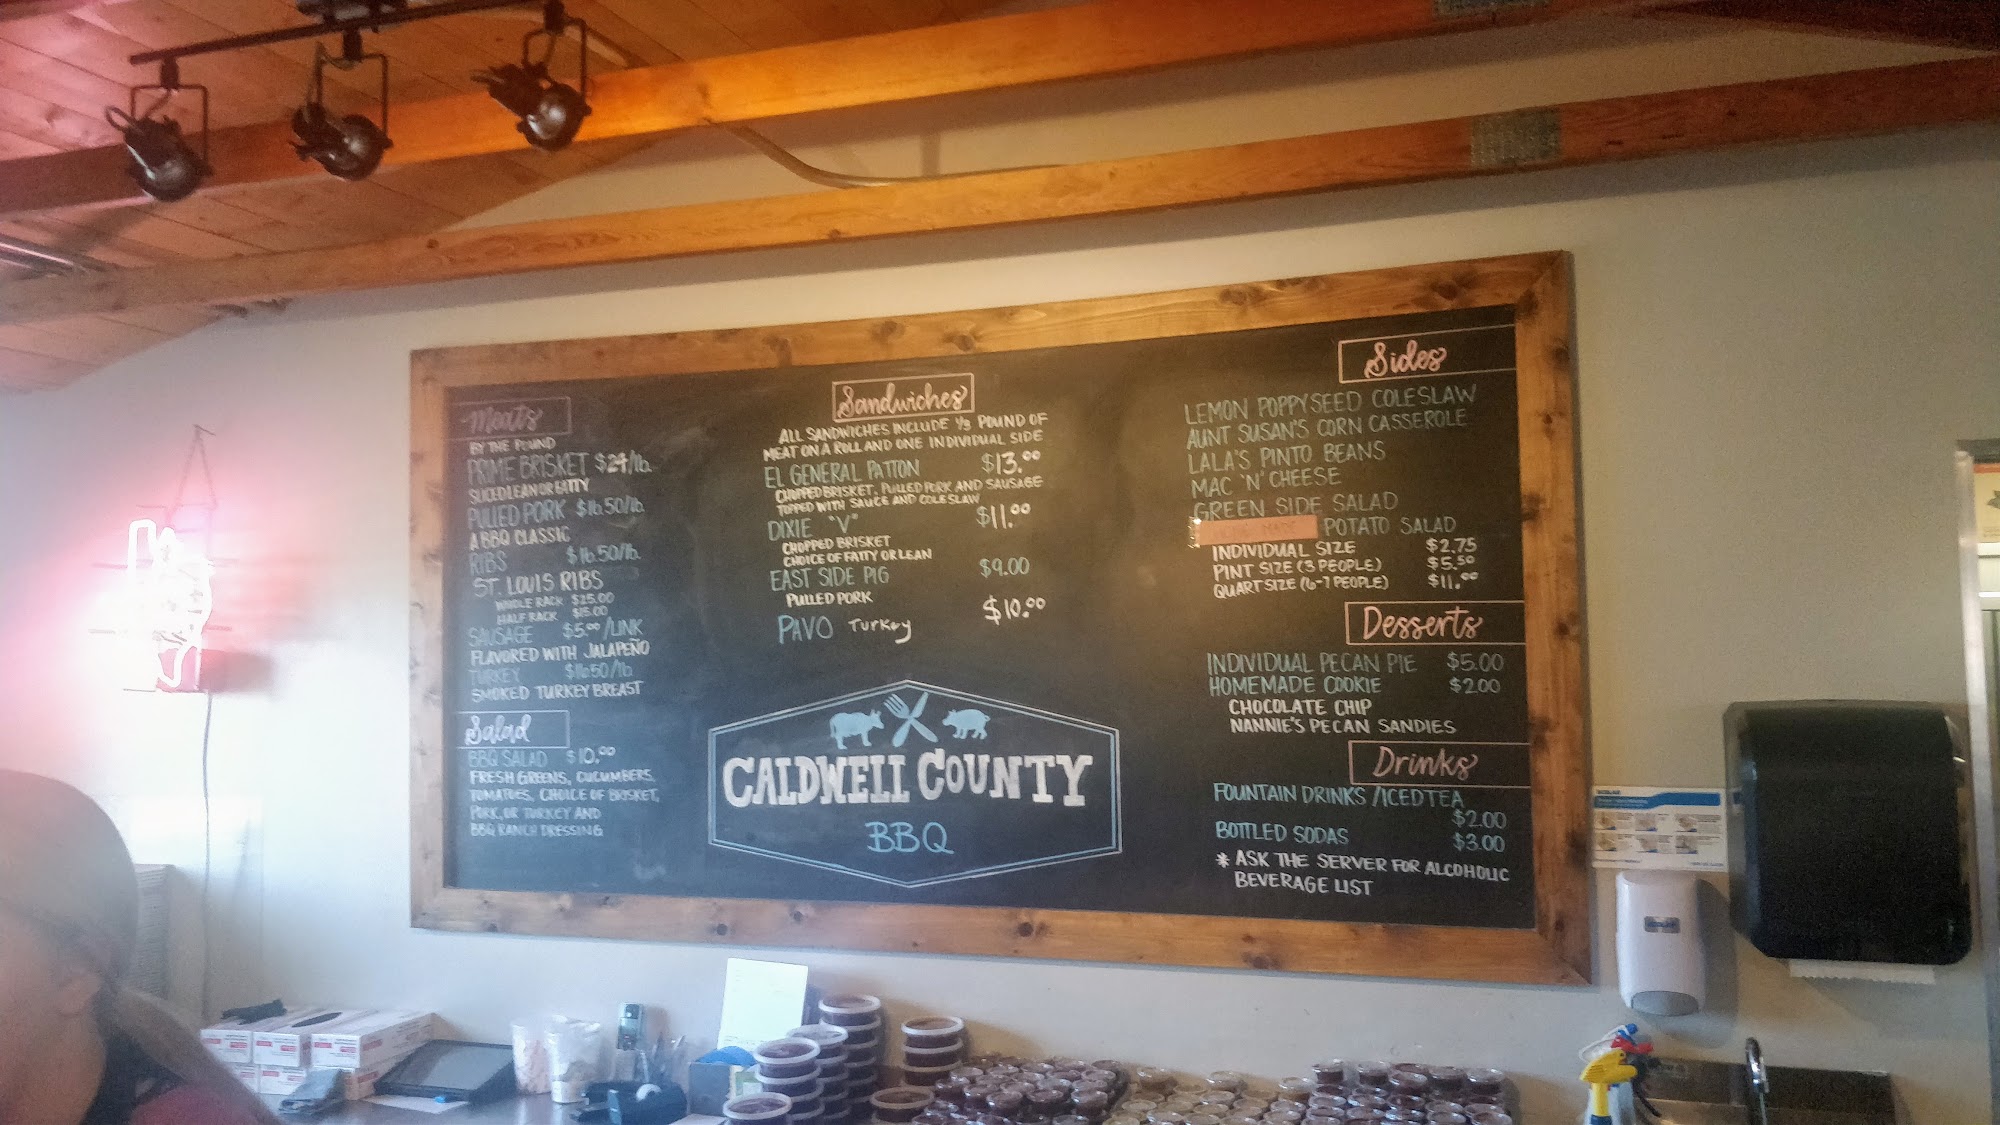 Meats
BY THE POUND
PRIME BRISKET $24/lb.
SLICED LEAN OR FATTY
PULLED PORK $16.50/lb.
A BBQ CLASSIC
RIBS $16.50/lb.
ST. LOUIS RIBS
WHOLE RACK $25.00
HALF RACK $15.00
SAUSAGE $5.00/LINK
FLAVORED WITH JALAPEÑO
TURKEY $16.50/lb.
SMOKED TURKEY BREAST
Salad
BBQ SALAD $10.00
FRESH GREENS, CUCUMBERS,
TOMATOES, CHOICE OF BRISKET,
PORK, OR TURKEY AND
BBQ RANCH DRESSING
Sandwiches
ALL SANDWICHES INCLUDE 1/3 POUND OF
MEAT ON A ROLL AND ONE INDIVIDUAL SIDE
EL GENERAL PATTON $13.00
CHOPPED BRISKET, PULLED PORK AND SAUSAGE
TOPPED WITH SAUCE AND COLESLAW
DIXIE "V" $11.00
CHOPPED BRISKET
CHOICE OF FATTY OR LEAN
EAST SIDE PIG $9.00
PULLED PORK
PAVO TurKey $10.00
CALDWELL COUNTY
BBQ
Sides
LEMON POPPYSEED COLESLAW
AUNT SUSAN'S CORN CASSEROLE
LALA'S PINTO BEANS
MAC 'N' CHEESE
GREEN SIDE SALAD
POTATO SALAD
INDIVIDUAL SIZE $2.75
PINT SIZE (3 PEOPLE) $5.50
QUART SIZE (6-7 PEOPLE) $11.00
Desserts
INDIVIDUAL PECAN PIE $5.00
HOMEMADE COOKIE $2.00
CHOCOLATE CHIP
NANNIE'S PECAN SANDIES
Drinks
FOUNTAIN DRINKS /ICED TEA
$2.00
BOTTLED SODAS $3.00
* ASK THE SERVER FOR ALCOHOLIC
BEVERAGE LIST